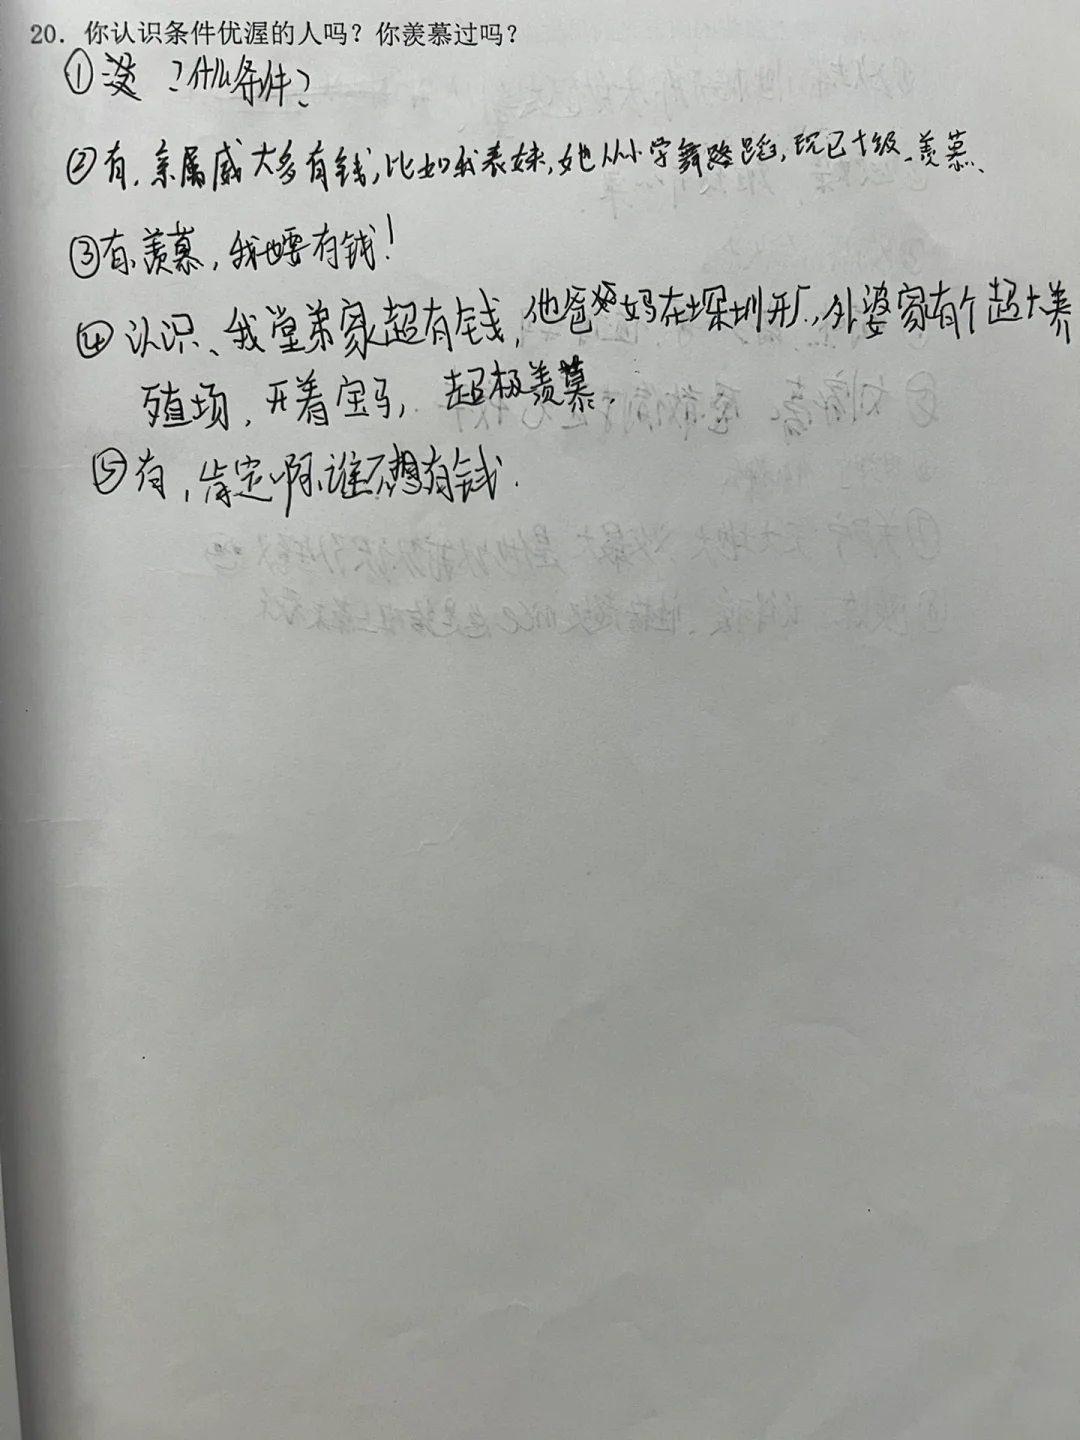 20. 你认识条件优渥的人吗？你羡慕过吗？
①没 ？什么条件？
②有，亲属戚大多有钱，比如我表妹，她从小学舞蹈，现已十级、羡慕、
③有、羡慕，我也要有钱！
④认识、我堂弟家超有钱，他爸妈在深圳开厂，外婆家有个超大养
殖场，开着宝马，超极羡慕.
⑤有，肯定啊、谁不想有钱.